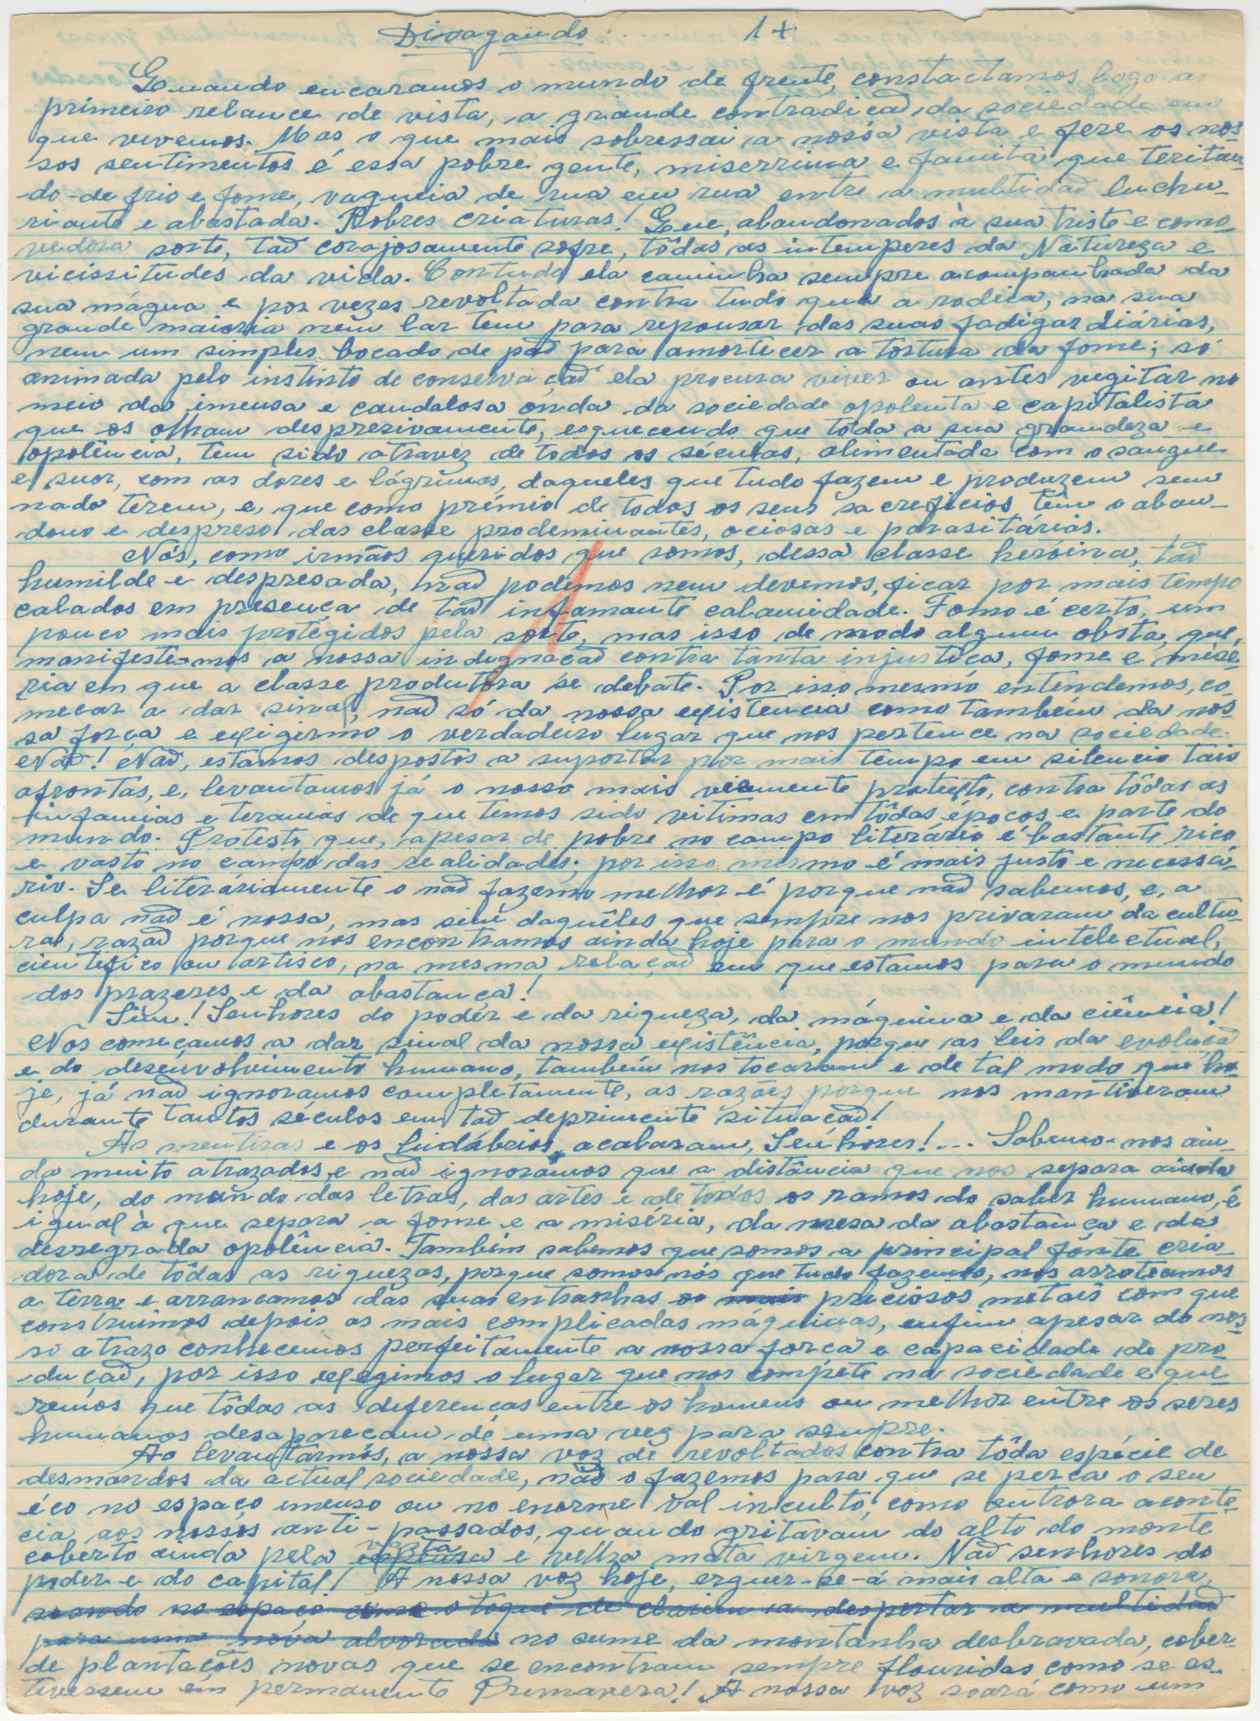 Divagando.. 1+
Quando encaramos o mundo de frente, constactamos logo a
primeiro relance de vista, a grande contradicão da sociedade em
que vivemos. Mas o que mais sobressai a nossa vista e fere os nos-
sos sentimentos é essa pobre gente, miserrima e faminta que teritan-
do-de frio e fome, vagueia de rua em rua entre a multidão luchu-
riante e abastada. Pobres criaturas! Que, abandonados à sua triste e como
vedora sorte, tão corajosamente sofre, tôdas as intemperes da Natureza e
vicissitudes da vida. Contudo ela caminha sempre acompanhada da
sua mágua e por vezes revoltada contra tudo que a rodeia, na sua
grande maioria nem lar tem para repousar das suas fadigas diárias,
nem um simples bocado de pão para amortecer a tortura da fome; só
animada pelo instinto de conservação ela procura viver ou antes vegitar no
meio da imensa e caudalosa onda da sociedade opolenta e capitalista
que os olham desprezivamente, esquecendo que tôda a sua grandeza e
opolência, tem sido atravez de todos os séculos, alimentada com o sangue
e suor, com as dôres e lágrimas, daqueles que tudo fazem e produzem sem
nada terem, e, que como prémio de todos os seus sacreficios têm o aban-
dono e despreso das classe prodeminantes, ociosas e parasitárias.
Nós, como irmãos queridos que somos, dessa classe heroina, tão
humilde e despresada, não podemos nem devemos, ficar por mais tempo
calados em presença de tão infamante calamidade. Fomo é certo, um
pouco mais protégidos pela sorte, mas isso de modo algum obsta, que,
manifeste-mos a nossa indignacão contra tanta injustiça, fome e misé-
ria em que a classe produtora se debate. Por isso mesmo entendemos, co-
meçar a dar sinal, não só da nossa existencia como também da nos-
sa força e exigirmo o verdadeiro lugar que nos pertence na sociedade.
Não! Não, estamos despostos a suportar por mais tempo em silencio tais
afrontas, e, levantamos já o nosso mais viemente protexto, contra tôdas as
infamias e teranias de que temos sido vitimas em tôdas épocas e parte do
mundo. Protesto que, apesar de pobre no campo literário é bastante rico
e vasto no campo das realidades, por isso mesmo é mais justo e necessá-
rio. Se literáriamente o não fazemo melhor é porque não sabemos, e, a
culpa não é nossa, mas sim daquêles que sempre nos privaram da cultu-
ral, razão porque nos encontramos ainda hoje para o mundo intelectual,
cientefico ou artisco, na mesma relação em que estamos para o mundo
dos prazeres e da abastança.
Sim! Senhores do poder e da riqueza, da máquina e da ciência!
Nós começamos a dar sinal da nossa existência, porque as leis da evolução
e do desenvolvimento humano, também nos tocaram e de tal modo que ho-
je, já não ignoramos completamente, as razões porque nos mantiveram
durante tantos seculos em tão deprimente situacão!
As mentiras e os ludíbrios, acabaram, Senhores!... Sabemo-nos ain-
da muito atrazados e não ignorâmos que a distância que nos separa ainda
hoje, do mundo das letras, das artes e de todos os ramos do saber humano, é
igual à que separa a fome e a miséria, da mesa da abastança e da
desregrada opolência. Também sabemos que somos a principal fónte cria-
dora de tôdas as riquezas, porque somos nós que tudo fazemos, nos arroteamos
a terra e arrancamos das suas entranhas os mais preciosos metais com que
construimos depois as mais complicadas máquinas, enfim apesar do nos-
so atrazo conhecemos perfeitamente a nossa força e capacidade de pro-
dução, por isso exegimos o lugar que nos compéte na sociedade e que-
remos que tôdas as diferenças entre os homens ou melhor entre os seres
humanos desapareçam de uma vez para sempre.
Ao levantarmos, a nossa voz de revoltados contra tôda espécie de
desmandos da actual sociedade, não o fazemos para que se perca o seu
éco no espaço imenso ou no enorme val inculto, como outrora aconte-
cia, aos nossos anti-passados, quando gritavam do alto do monte
coberto ainda pela vasta e velha mata virgem. Não senhores do
poder e do capital! A nossa voz hoje, erguer-se-á mais alta e sonora,
soando no espaço como o toque de clarim a despertar a multidão
para uma nóva alvorada no cume da montanha desbravada, cober-
de plantações novas que se encontram sempre flouridas como se es-
tivessem em permanente Primavera! A nossa voz soará como um